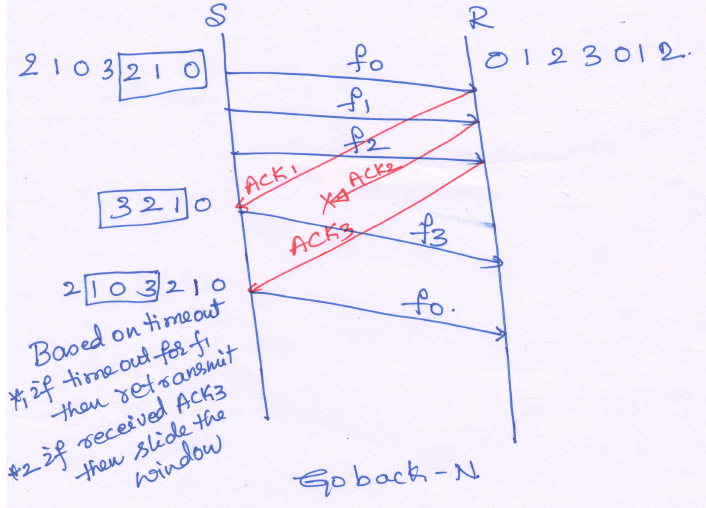 S R
2 1 0 3 2 1 0
f0
0 1 2 3 0 1 2.
f1
f2
ACK1
ACK2
3 2 1 0
ACK3
f3
2 1 0 3 2 1 0
f0.
Based on timeout
*1 if time out for f1
then retransmit
*2 if received ACK3
then slide the
window
Go back - N